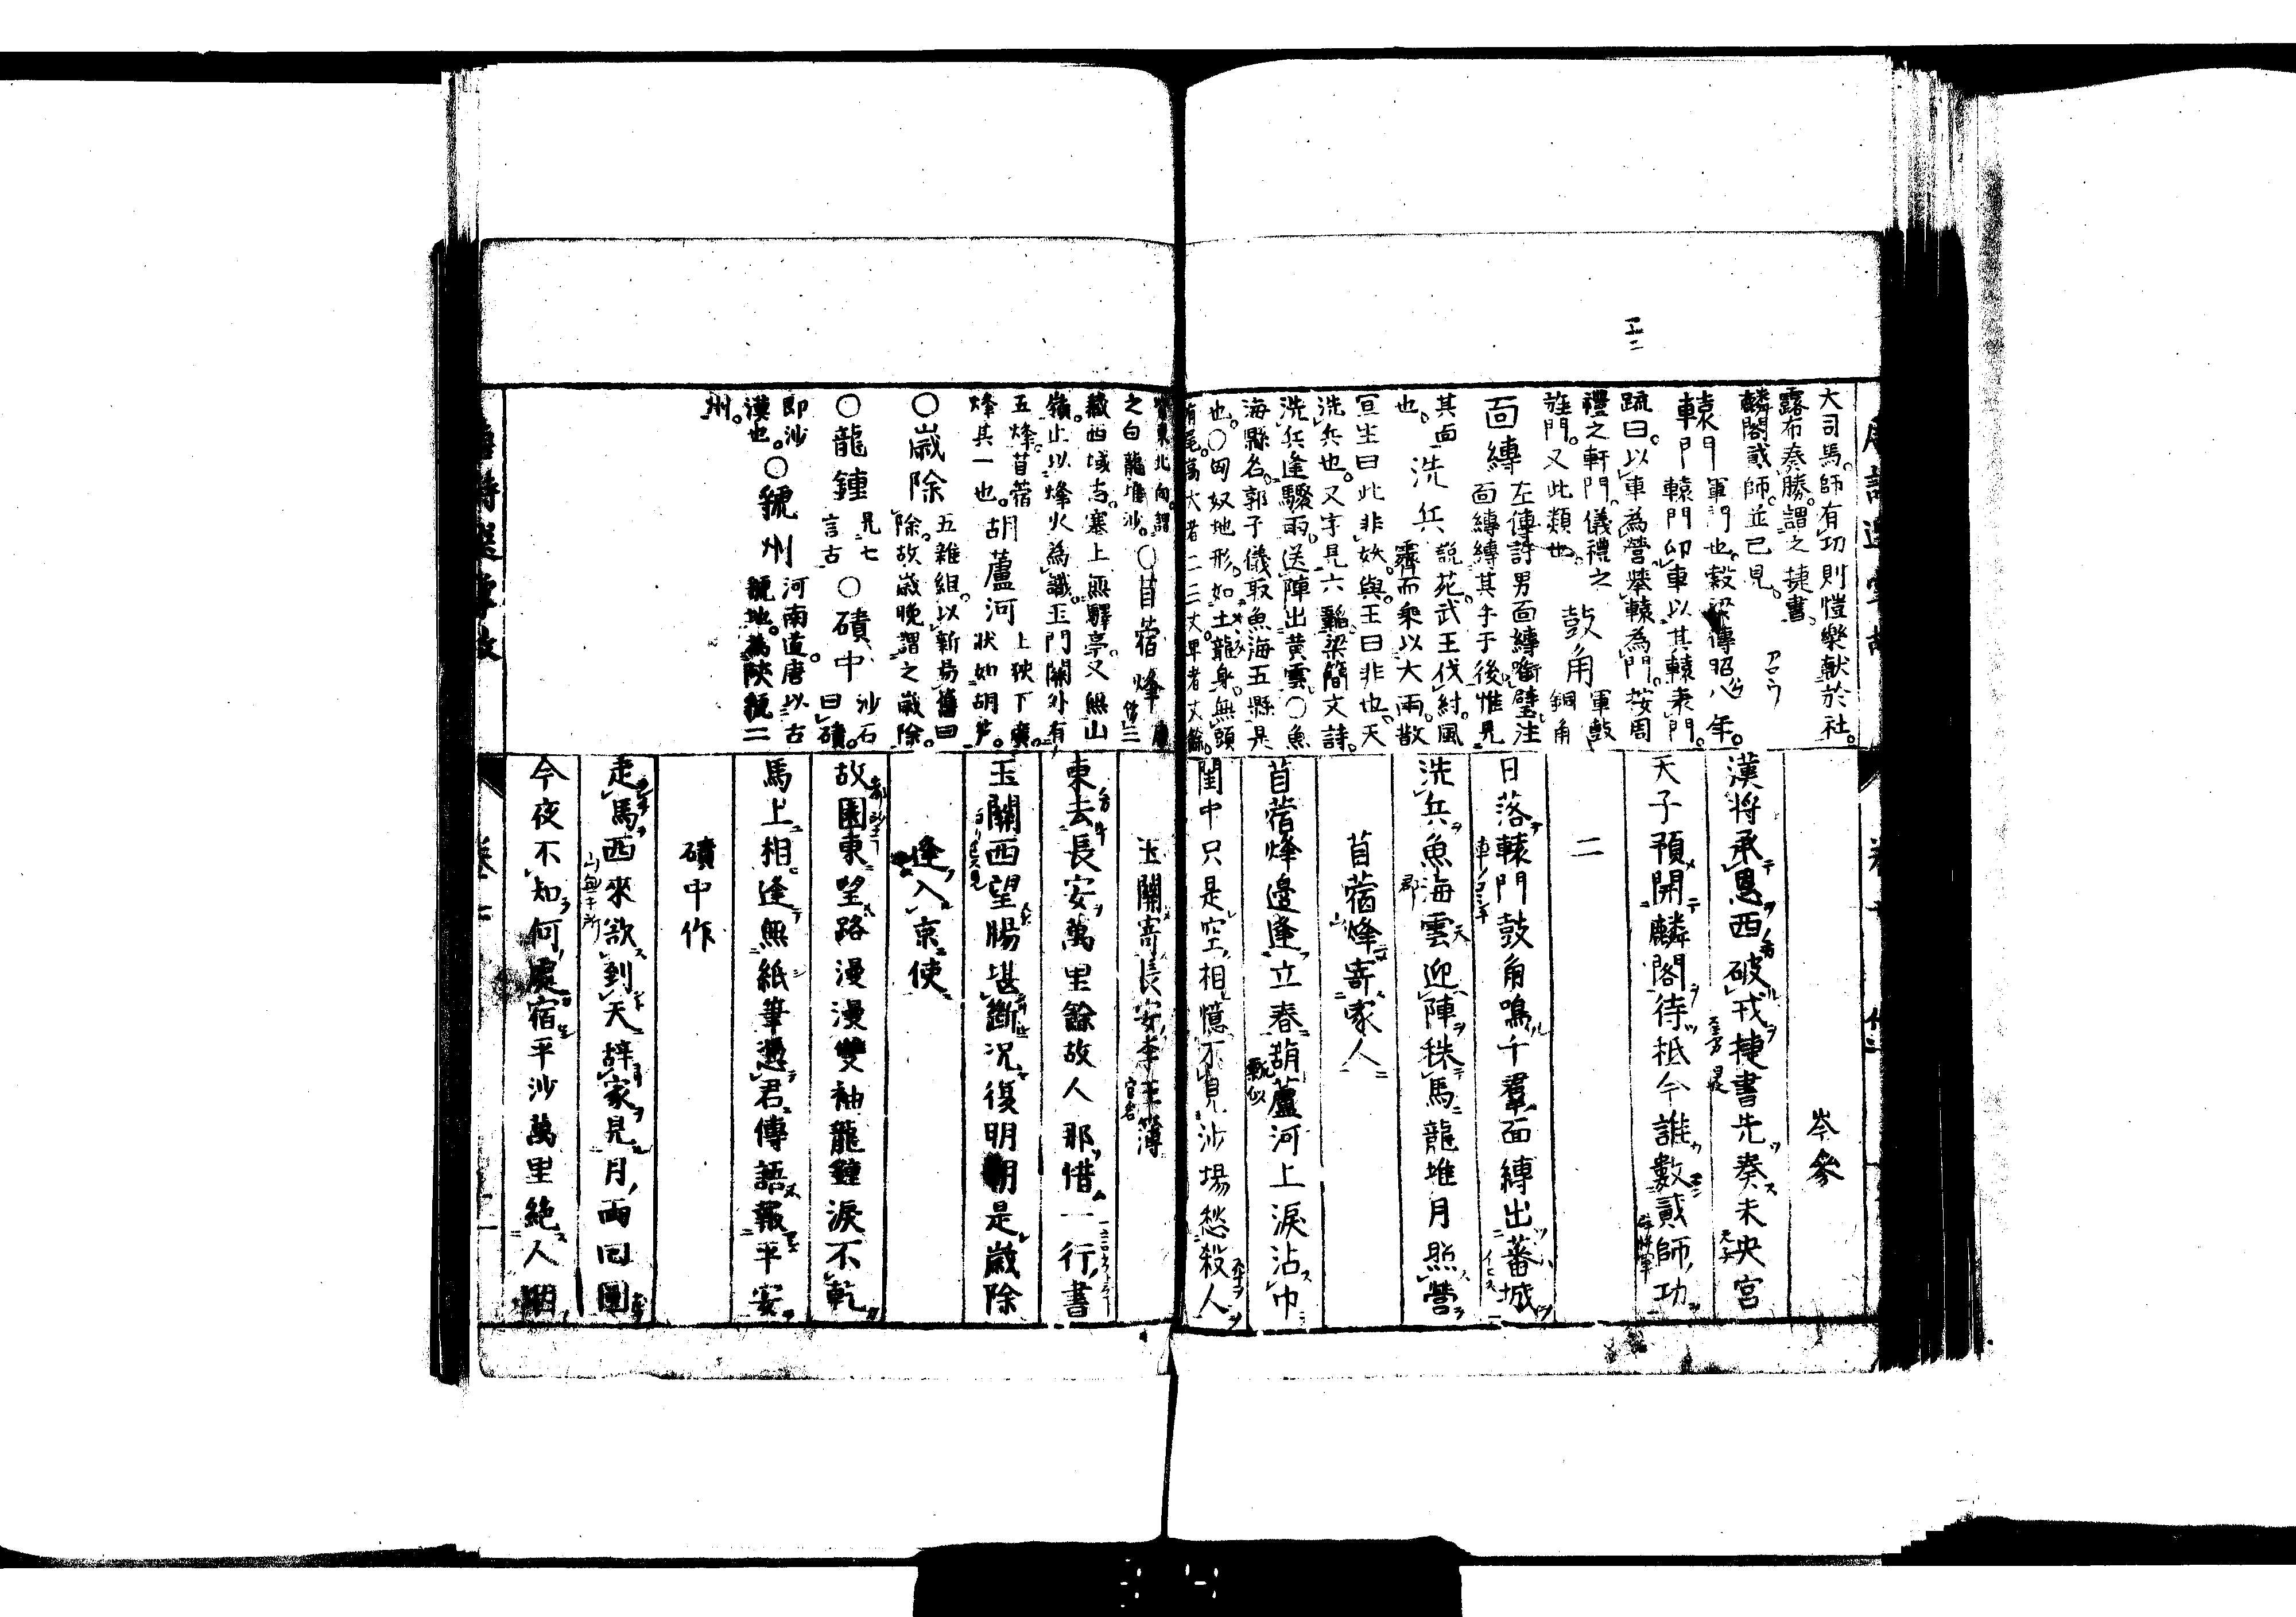 大司馬。師有功則愷樂獻於社。
露布奏勝。謂之捷書。
麟閣貳師。並已見。
轅門 軍門也。穀梁傳昭八年。
轅門卬車以其轅表門。
疏曰。以車為營舉轅為門。按周
禮之軒門。儀禮之
旌門。又此類也。 鼓角 軍鼓
銅角
面縛 左傳許男面縛啣璧注
面縛縛其手于後惟見
其面 洗兵 說苑。武王伐紂。風
也。 霽而乘以大雨。散
宜生曰此非妖與。王曰非也。天
洗兵也。又字見六韜。梁簡文詩。
洗兵逢驟雨。送陣出黃雲。○魚
海縣名。郭子儀取魚海五縣是
也。○匈奴地形。如土龍身。無頭
有尾。高大者二三丈。卑者丈餘。
岑參
漢將承恩西破戎捷書先奏未央宮
天子預開麟閣待祗今誰數貳師功
二
日落轅門鼓角鳴千群面縛出蕃城
洗兵魚海雲迎陣秣馬龍堆月照營
苜蓿烽寄家人
苜蓿烽邊逢立春葫蘆河上淚沾巾
閨中只是空相憶不見沙場愁殺人
皆東北向。謂
之白龍堆沙。○苜蓿烽
藏西域志。塞上無驛亭。又無山
嶺。止以烽火為識。玉門關外有
五烽。苜蓿 胡蘆河 上狹下廣。
烽其一也。 狀如胡芦。
○歲除 五雜組。以新易舊曰
除。故歲晚謂之歲除。
○龍鍾 見七
言古 ○磧中 沙石
曰磧。
即沙
漠也。○虢州 河南道唐以古
虢地。為陝虢二
州。
玉關寄長安李主簿
東去長安萬里餘故人那惜一行書
玉關西望腸堪斷況復明朝是歲除
逢入京使
故園東望路漫漫雙袖龍鍾淚不乾
馬上相逢無紙筆憑君傳語報平安
磧中作
走馬西來欲到天辭家見月兩回圓
今夜不知何處宿平沙萬里絕人烟